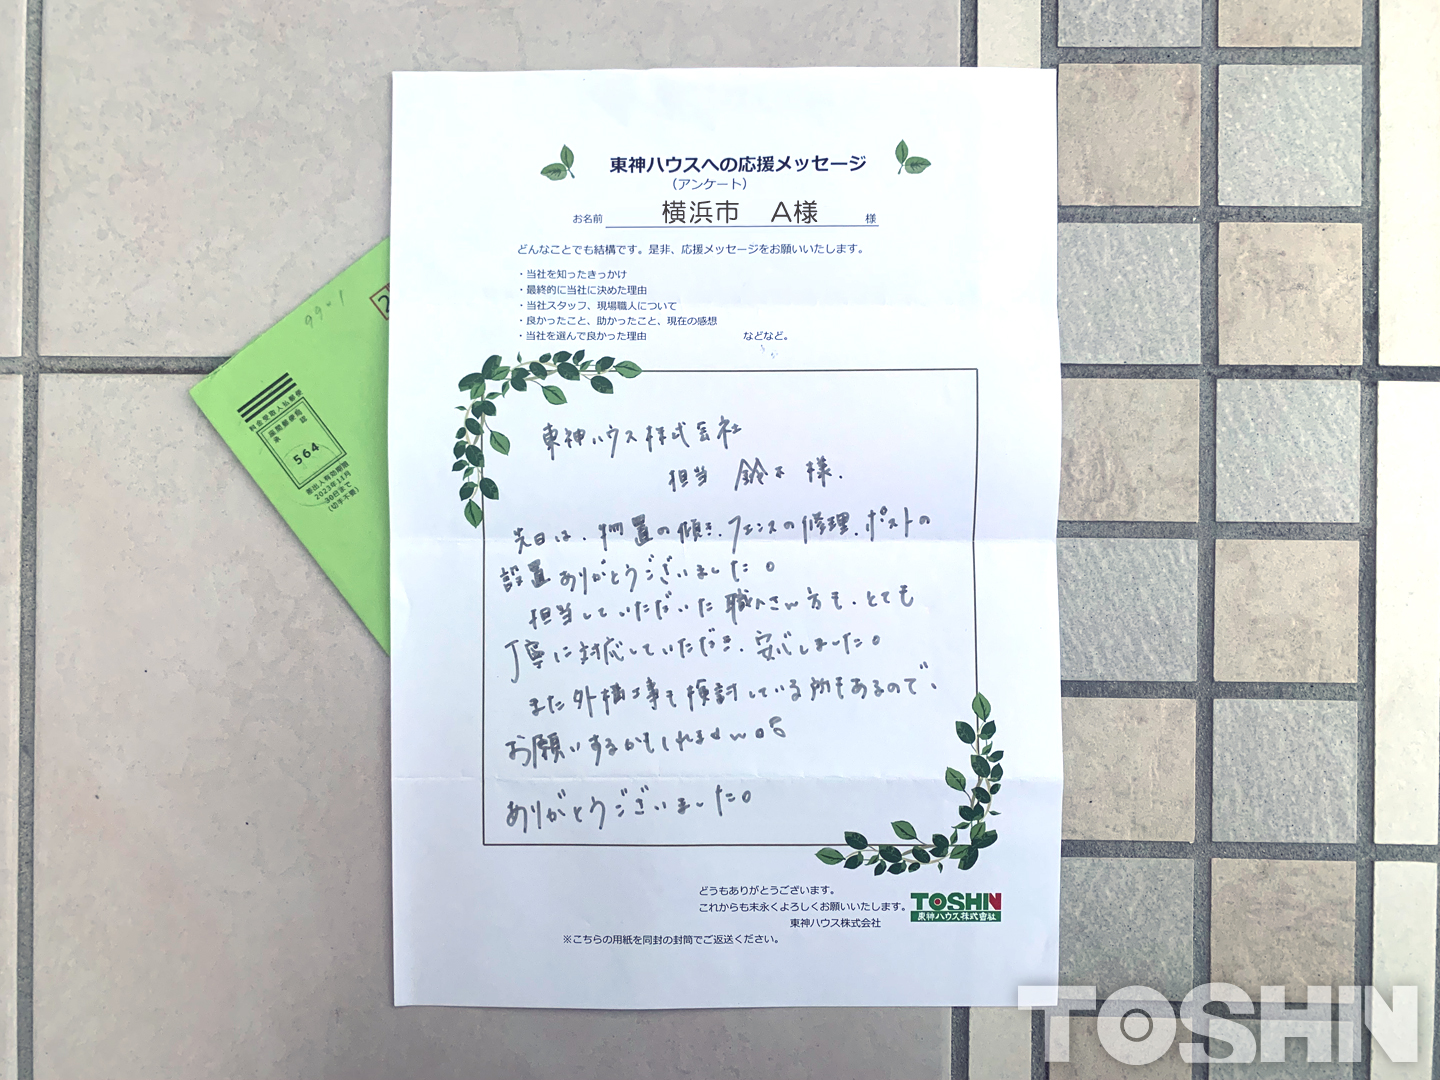 東神ハウスへの応援メッセージ
（アンケート）
お名前 横浜市 A様 様
どんなことでも結構です。是非、応援メッセージをお願いいたします。
・当社を知ったきっかけ
・最終的に当社に決めた理由
・当社スタッフ、現場職人について
・良かったこと、助かったこと、現在の感想
・当社を選んで良かった理由 などなど。
東神ハウス株式会社
担当 鈴木 様.
先日は、物置の傾き、フェンスの修理、ポストの
設置ありがとうございました。
担当していただいた職人さん方も、とても
丁寧に対応していただき、安心しました。
また外構工事も検討している所もあるので、
お願いするかもしれません。
ありがとうございました。
どうもありがとうございます。
これからも末永くよろしくお願いいたします。
東神ハウス株式会社
TOSHIN
東神ハウス株式会社
※こちらの用紙を同封の封筒でご返送ください。
料金受取人払郵便
座間郵便局
承認
564
差出人有効期間
2023年11月
30日まで
(切手不要)
2
TOSHIN